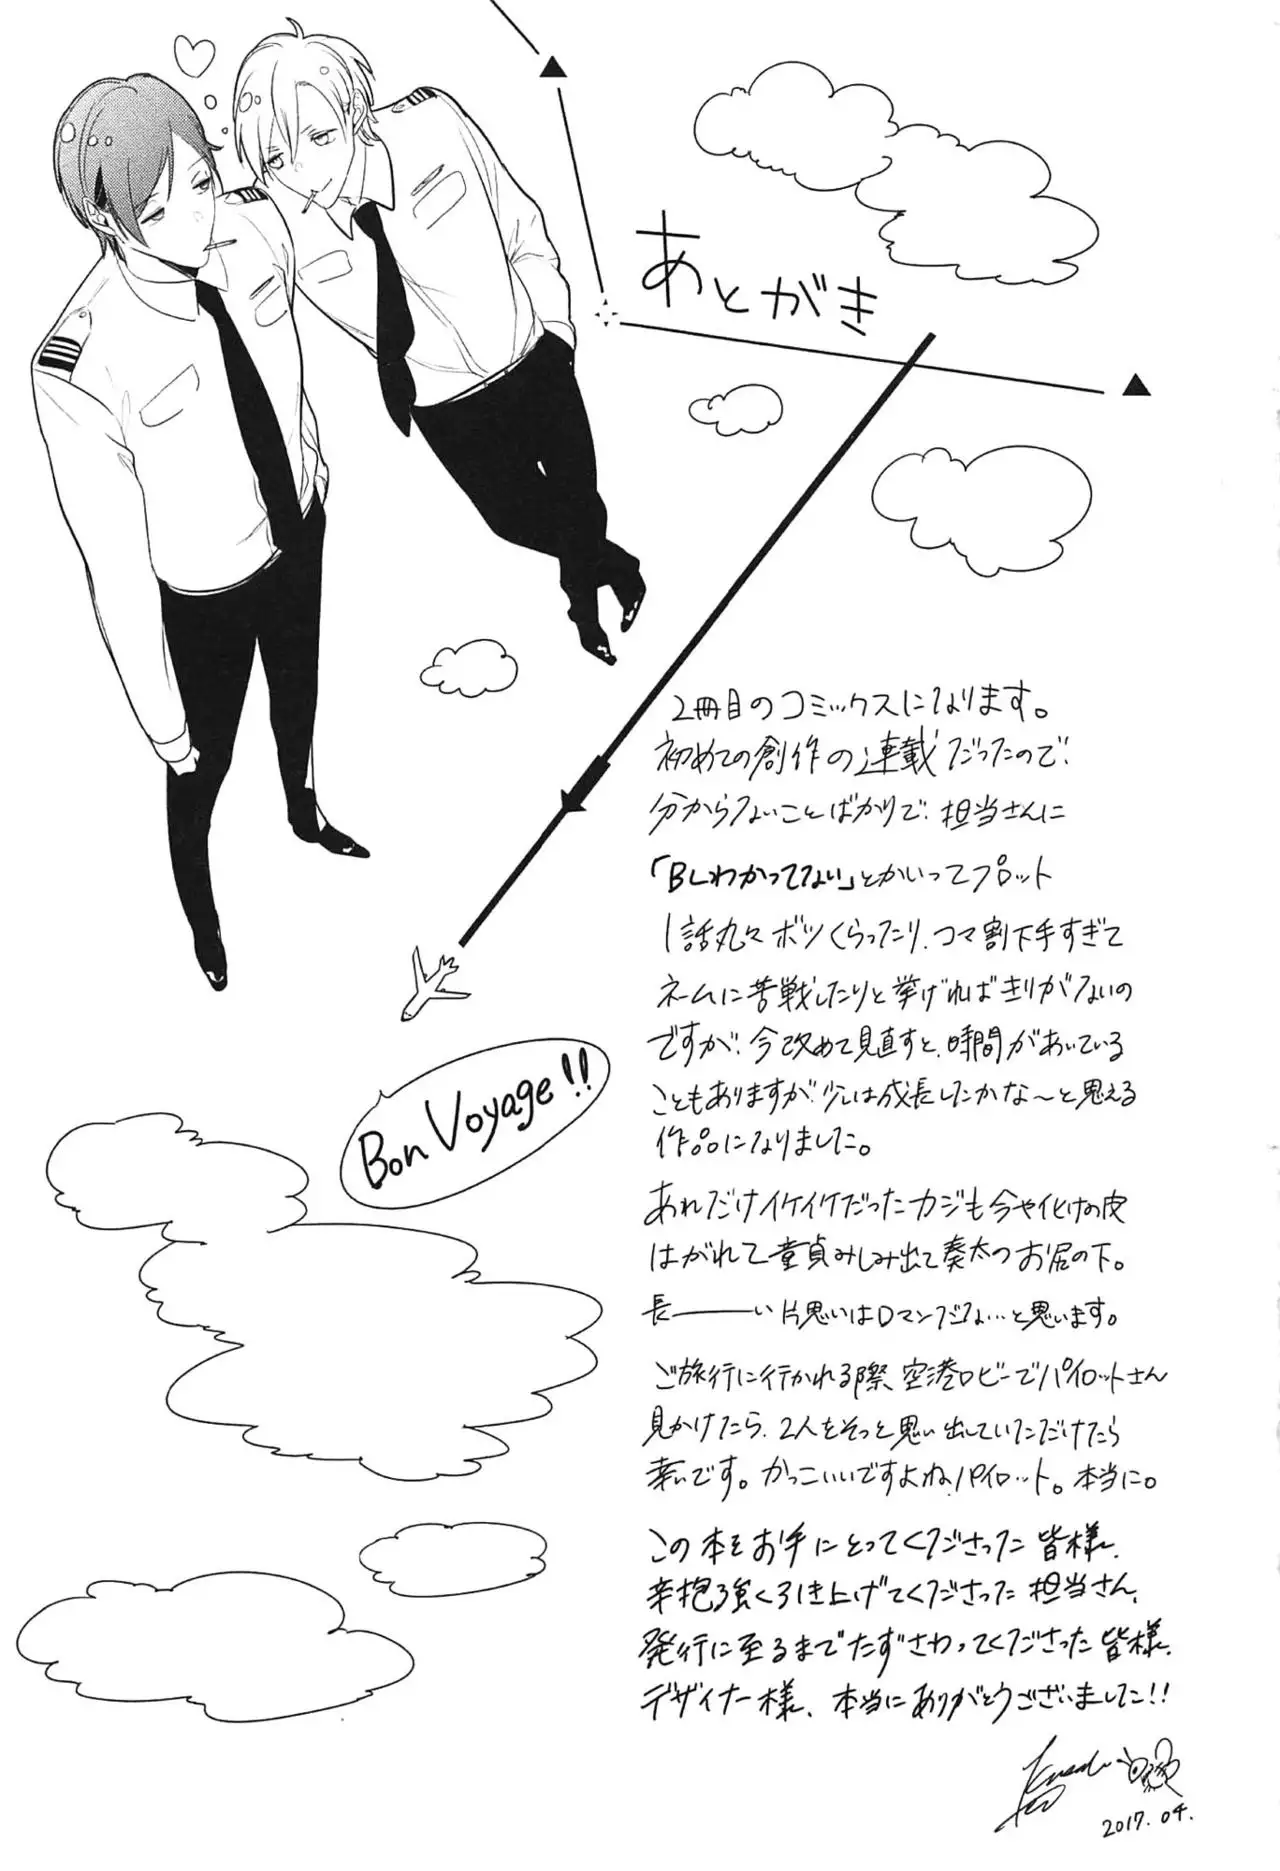 あとがき
2冊目のコミックスになります。
初めての創作の連載だったので、
分からないことばかりで、担当さんに
「BLわかってない」とかいってプロット
1話丸々ボツくらったり、コマ割下手すぎて
ネームに苦戦したりと挙げればきりがないの
ですが、今改めて見直すと、時間があいている
こともありますが、少しは成長したかな〜と思える
作品になりました。
あれだけイケイケだったカジも今や化けの皮
はがれて童貞みしみ出て奏太のお尻の下。
長――――い片思いはロマンだな…と思います。
ご旅行に行かれる際、空港ロビーでパイロットさん
見かけたら、2人をそっと思い出していただけたら
幸いです。かっこいいですよねパイロット。本当に。
この本をお手にとってくださった皆様、
辛抱強く引き上げてくださった担当さん、
発行に至るまでたずさわってくださった皆様、
デザイナー様、本当にありがとうございました!!
2017.04.
Bon Voyage!!